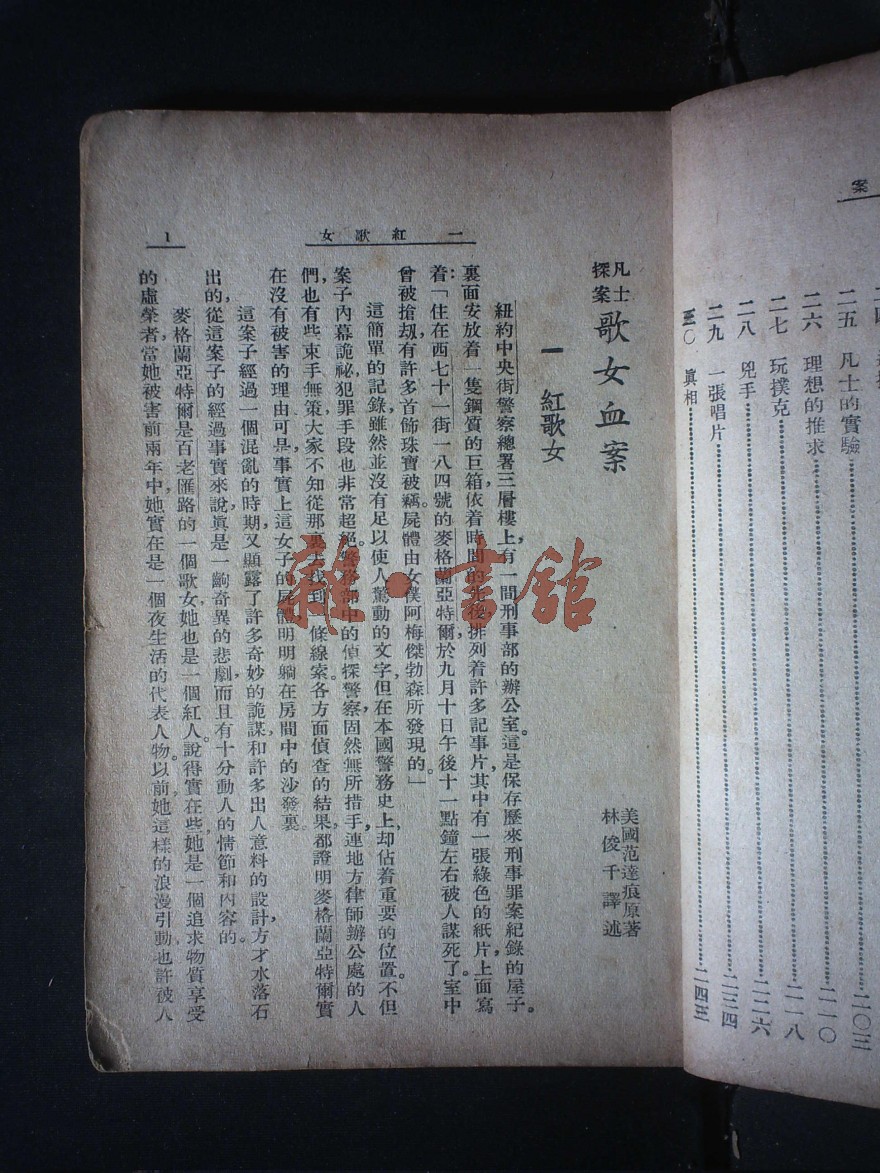 案
二五　凡士的實驗…………二〇三
二六　理想的推求…………二一〇
二七　玩撲克…………二一八
二八　兇手…………二二六
二九　一張唱片…………二三四
三〇　眞相…………二四三
一　紅歌女
1
凡士探案
歌女血案
美國范達痕原著
林俊千譯述
一　紅歌女
紐約中央街警察總署三層樓上，有一間刑事部的辦公室。這是保存歷來刑事罪案紀錄的屋子。
裏面安放着一隻鋼質的巨箱依着時間的先後排列着許多記事片，其中有一張綠色的紙片，上面寫
着：「住在西七十一街一八四號的麥格蘭亞特爾，於九月十日午後十一點鐘左右被人謀死了。室中
曾被搶刼，有許多首飾珠寶被竊。屍體由女僕阿梅傑勃森所發現的。」
這簡單的記錄，雖然並沒有足以使人驚動的文字，但在本國警務史上，却佔着重要的位置。不但
案子內幕詭祕，犯罪手段也非常超絕。警務部中的偵探警察固然無所措手，連地方律師辦公處的人
們，也有些束手無策。大家不知從那裏去找到一條線索。各方面偵查的結果，都證明麥格蘭亞特爾實
在沒有被害的理由，可是事實上這女子的屍體明明躺在房間中的沙發裏。
這案子經過一個混亂的時期，又顯露了許多奇妙的詭謀和許多出人意料的設計，方才水落石
出的。從這案子的經過事實來說，眞是一齣奇異的悲劇，而且有十分動人的情節和內容的。
麥格蘭亞特爾是百老匯路的一個歌女，她也是一個紅人。說得實在些，她是一個追求物質享受
的虛榮者，當她被害前兩年中，她實在是一個夜生活的代表人物。以前她這樣的浪漫引動，也許被人
雜·書館